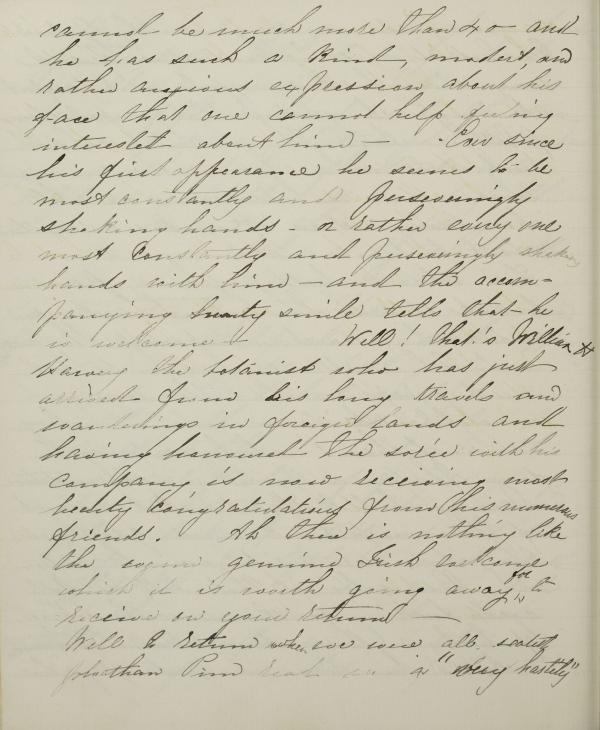 cannot be much more than 40 and
he has such a kind, modest, and
rather anxious expression about his
face that one cannot help feeling
interestet about him — Ever since
his first appearance he seems to be
most constantly and perseveingly
shaking hands - or rather every one
most constantly and perseveingly shaking
hands with him — and the accom-
panying hearty smile tells that he
is welcome — Well! that's William H
Harvey the botanist who has just
arrived from his long travels and
wanderings in foreign lands and
having honoured the soree with his
company is now receiving most
hearty congratulations from his numerous
friends. Ah there is nothing like
the genuine Irish welcome
which it is worth going away for to
receive on your return —
Well to return when we were all seated
Jonathan Pim read in a "very hastety"